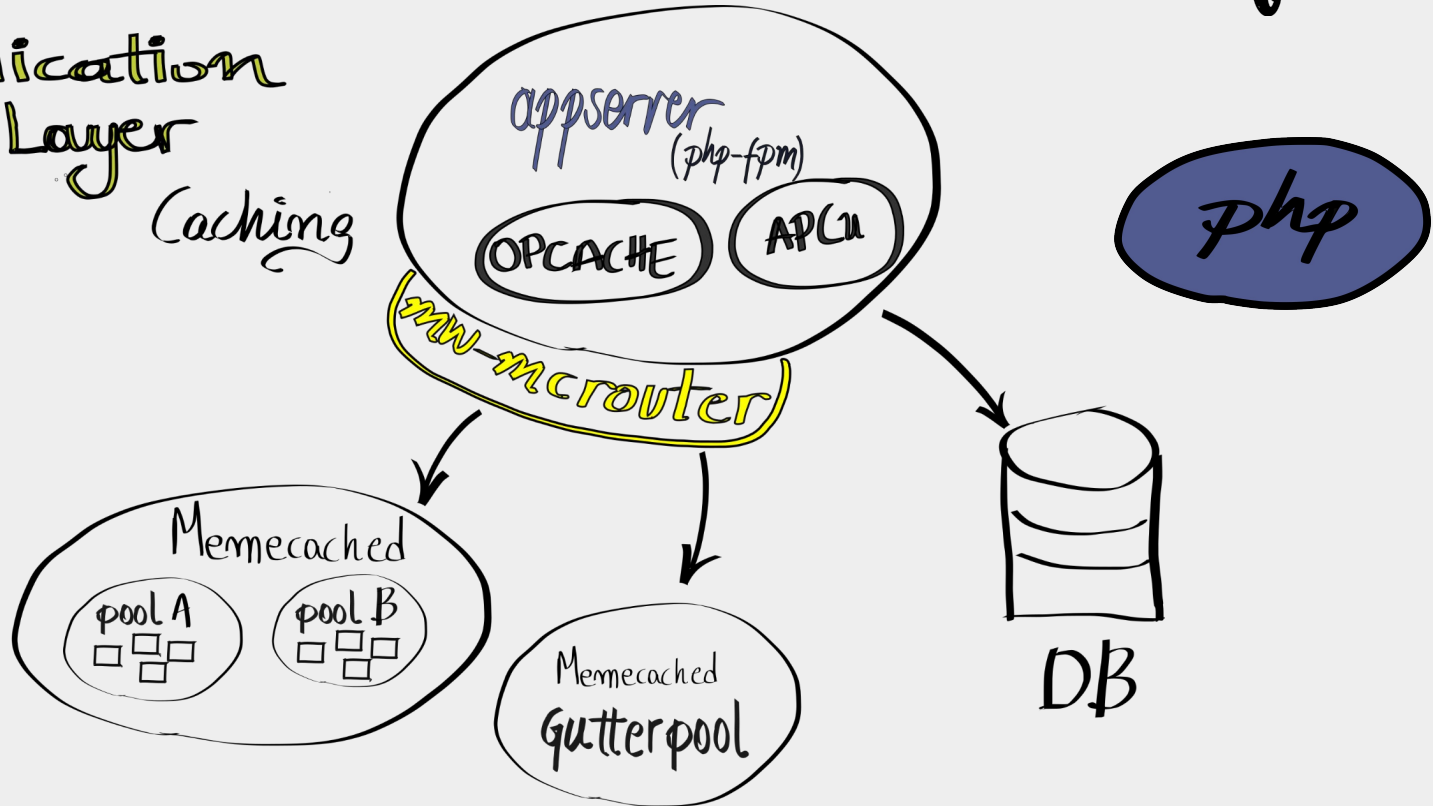 lication
Layer
Caching
appserver
(php-fpm)
OPCACHE
APCu
mw-mcrouter
php
Memecached
pool A
pool B
Memecached
Gutterpool
DB